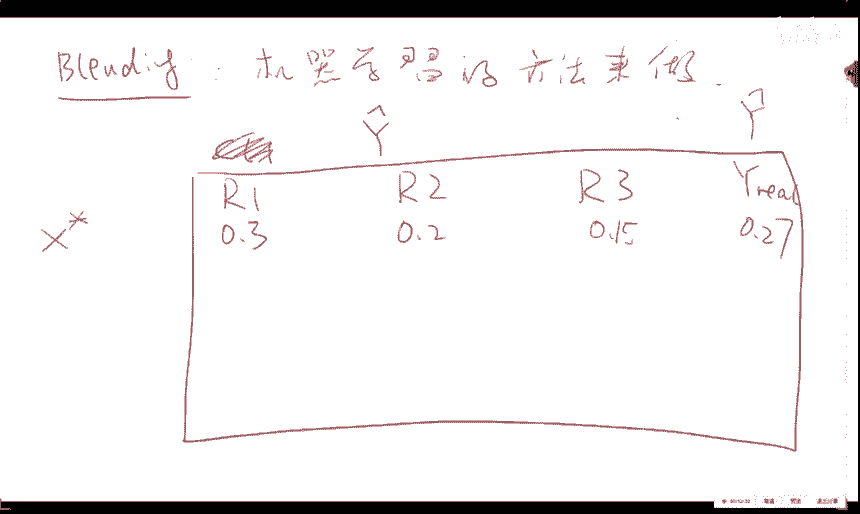 Blendig : 机器学习的方法来做.
Ŷ Ŷ
R1 R2 R3 Yreal
X* 0.3 0.2 0.15 0.27